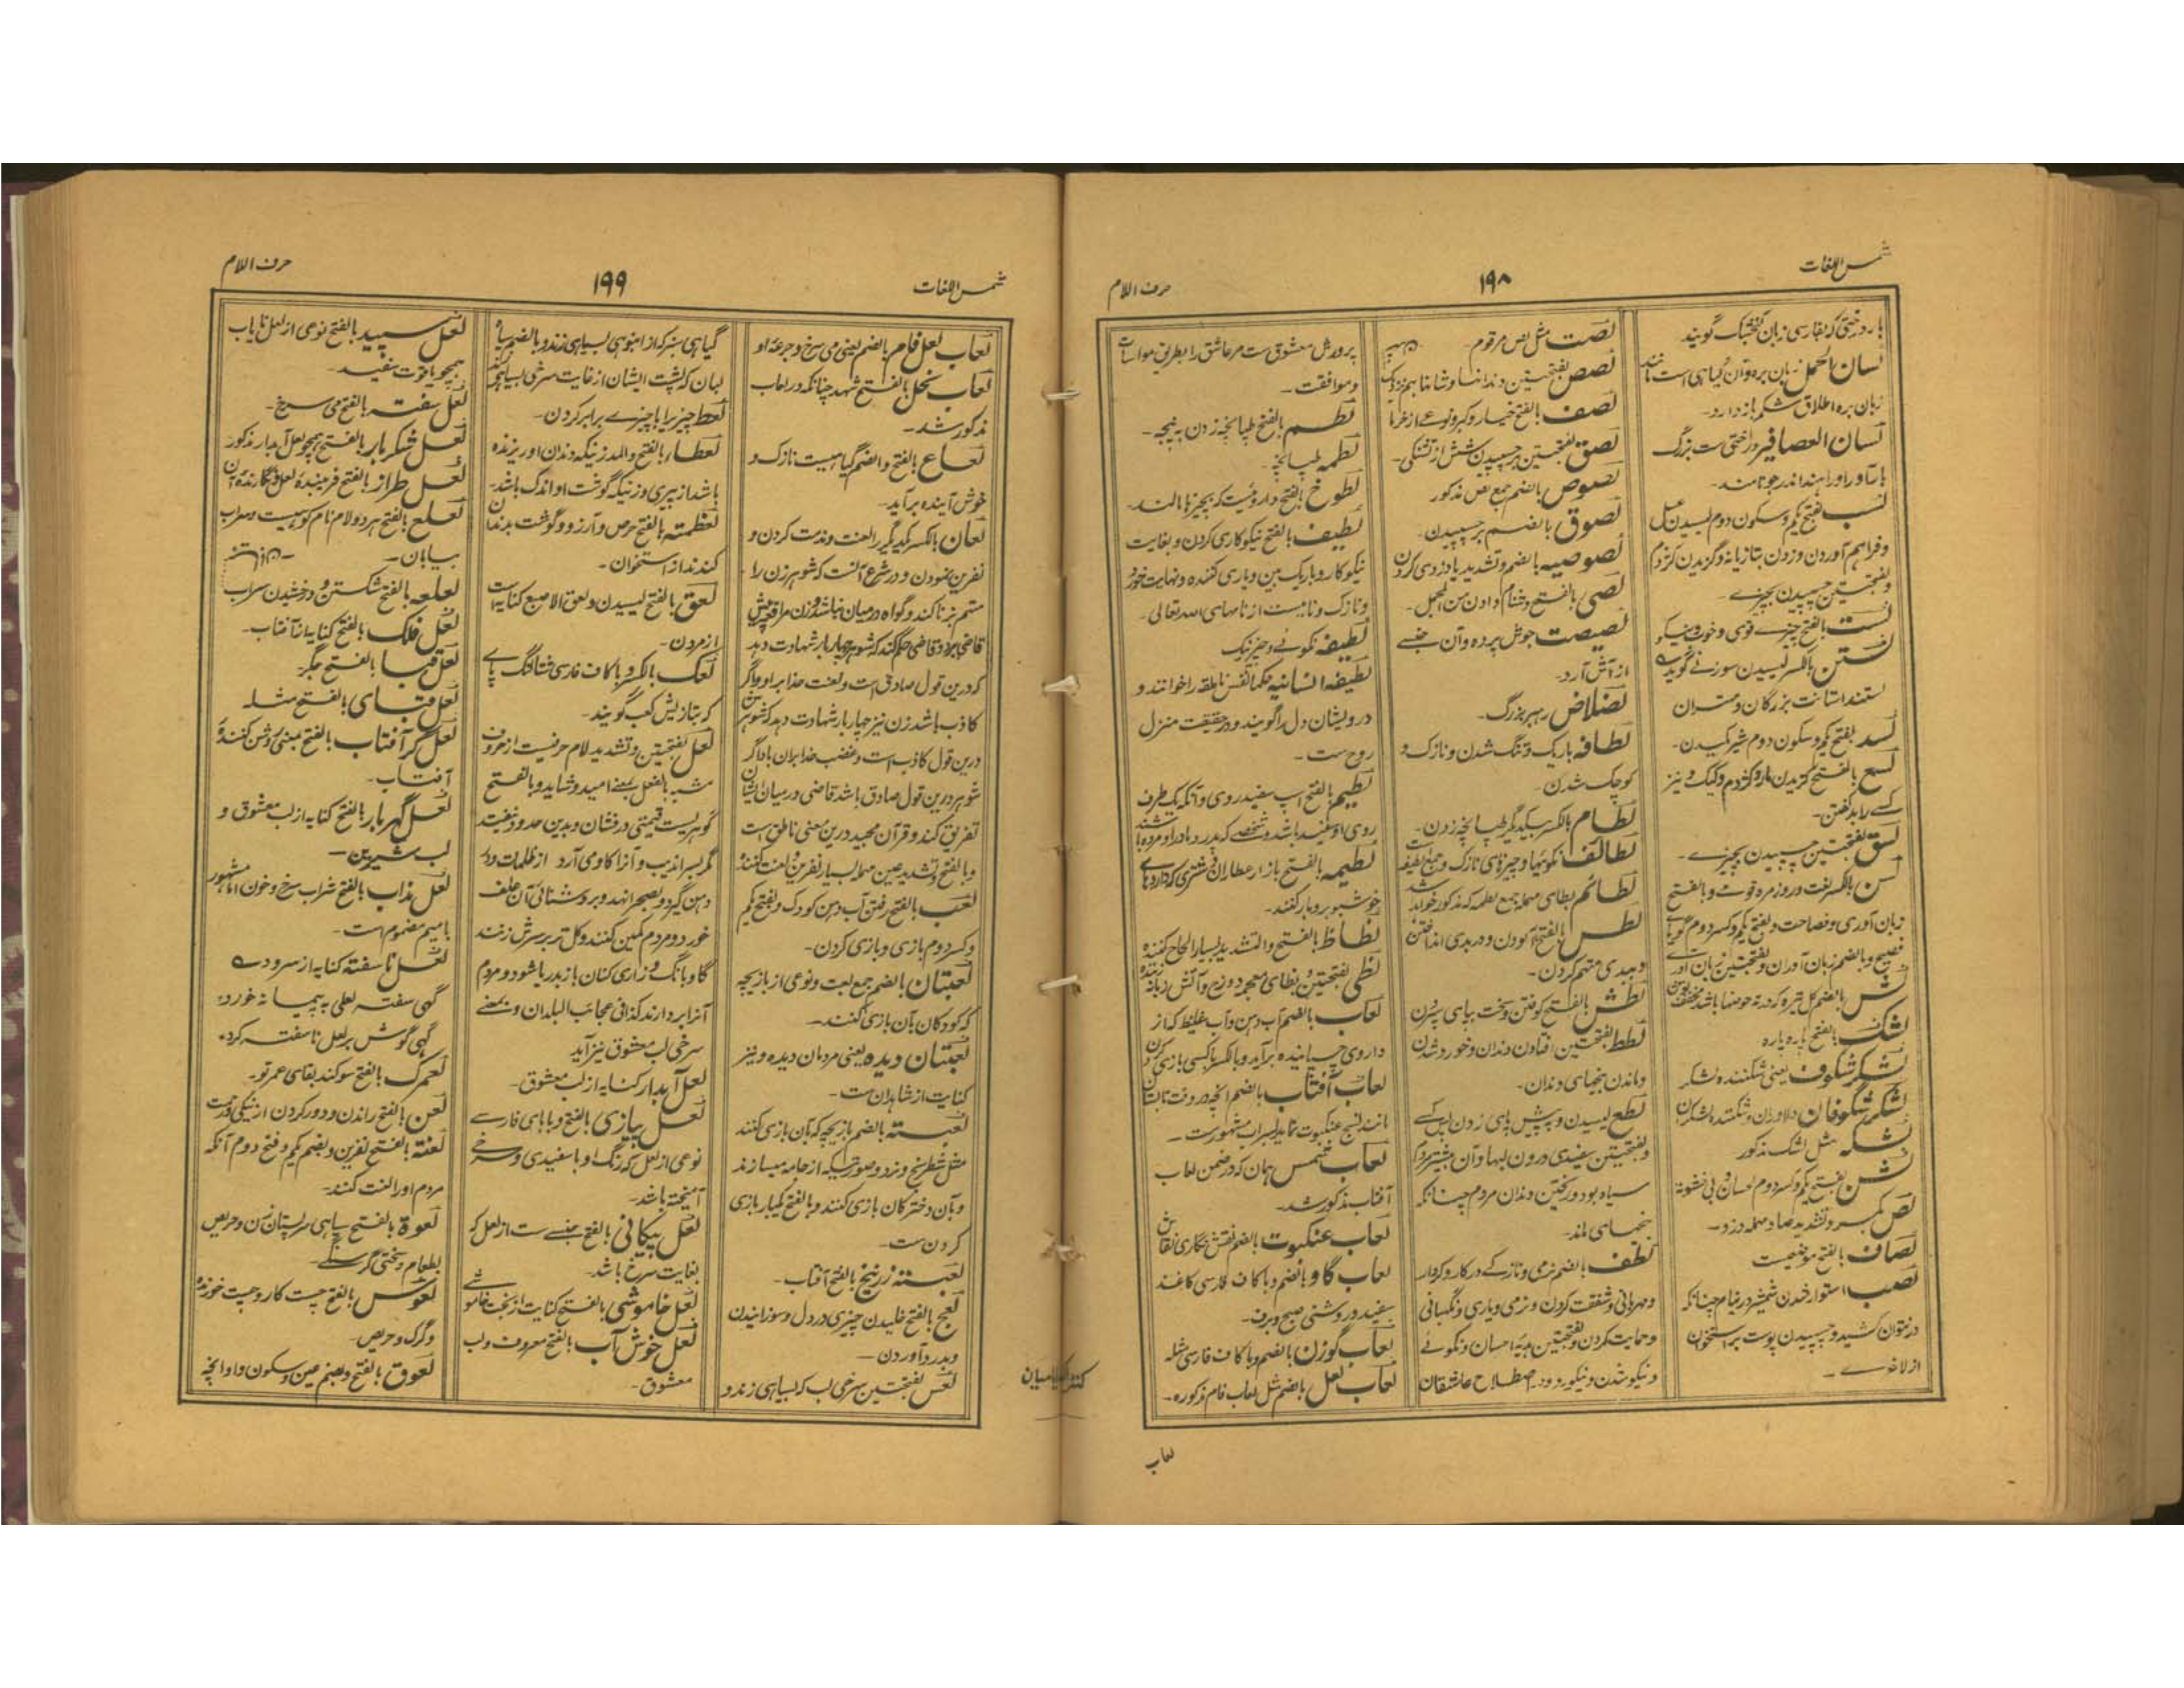 شمس اللغات
۱۹۸
حرف اللام
بار درختی که بفارسی زبان گنجشک گویند
لسان الحمل زبان بره و آن گیاهی است مانند
زبان بره اطلاق شکم باز دارد۔
لسان العصافیر درختی ست بزرگ
بار آور اورا بهند اندر جو نامند۔
لسب بفتح یکم و سکون دوم لیسیدن عسل
و فراهم آوردن و زدن بتازیانه و گزیدن کژدم
و بفتحتین چسپیدن بچیزے۔
لست بالفتح چیزے قوی و خوب و نیکو
لستن بالکسر لیسیدن سوزنی گوید
لسد بفتح یکم و سکون دوم شیر مکیدن۔
لسع بالفتح گزیدن مار و کژدم و کیک و نیز
کسے را بد گفتن۔
لسق بفتحتین چسپیدن بچیزے۔
لسن بالکسر لغت و روزمره قومے و بالفتح
زبان آوری و فصاحت و بفتح یکم و کسر دوم گویا
فصیح و بالضم زبان آوران و بفتحتین زبان آور
لشک بالفتح پاره پاره
لشکر شکوف یعنی شکننده لشکر
لشکر شکوفان دلاوران و شکننده لشکران
لشکه مثل لشک مذکور
لص بکسر و تشدید صاد مهمله دزد۔
لصاف بالفتح موضعیست
لصب استوار شدن شمشیر در نیام چنانکه
در نتوان کشید و چسپیدن پوست بر استخوان
از لاغرے۔
لصت مثل لص مرقوم۔
لصص بفتحتین دندانها و شانها بهم نزدیک
لصف بالفتح خیار و کبر و نوعے از خرما
لصق بفتحتین بر چسپیدن شش از تشنگی۔
لصوص بالضم جمع لص مذکور
لصوق بالضم بر چسپیدن۔
لصوصیه بالضم و تشدید یا دزدی کردن
لصی بالفتح دشنام دادن من المجمل۔
لصیصت جوش برده و آن جنسے
از آش آرد۔
لضلاض رهبر بزرگ۔
لطافه باریک و تنگ شدن و نازک و
کوچک شدن۔
لطام بالکسر بیکدیگر طپانچه زدن۔
لطائف نکوئیها و چیزهای نازک و جمع لطیفه
لطائم بطای مهمله جمع لطمه که مذکور خواهد شد
لطس بالفتح آلودن و در بدی انداختن
و ببدی متهم کردن۔
لطش بالفتح کوفتن و سخت بپای سپردن
لطط بفتحتین افتادن دندان و خورد شدن
و ماندن بیخهای دندان۔
لطع لیسیدن و پیش پای زدن پس کسے
و بفتحتین سفیدی درون لبها و آن بیشتر مردم
سیاه بود و ریختن دندان مردم چنانکه
بیخهای ماند۔
لطف بالضم نرمی و نازکے در کار و کردار
و مهربانی و شفقت کردن و نرمی و یاری و نگهبانی
و حمایت کردن و بفتحتین هدیه احسان و نکوئے
و نیکو شدن و نیکو رود۔ اصطلاح عاشقان
پرورش معشوق ست مر عاشق را بطریق مواسات
و موافقت۔
لطم بالفتح طپانچه زدن به پنجه۔
لطمه طپانچه۔
لطوخ بالفتح داروئیست که بچیزها مالند۔
لطیف بالفتح نیکوکاری کردن و بغایت
نیکوکار و باریک بین و یاری کننده و نهایت خورد
و نازک و نامیست از نامهای الله تعالی۔
لطیفه نکوئے و چیز نیک
لطیفه انسانیه حکما نفس ناطقه را خوانند و
درویشان دل را گویند و در حقیقت منزل
روح ست۔
لطیم بالفتح اسپ سفید روی و آنکه یک طرف
روی او سفید باشد و شخصے که پدر و مادر او مرده باشند
لطیمه بالفتح بازار عطاران و شتری که داروهاے
خوشبو برو بار کنند۔
لظاظ بالفتح و التشدید بسیار الحاح کننده
لظی بفتحتین و بظای معجمه دوزخ و آتش زبانه زننده
لعاب بالضم آب دهن و آب غلیظ که از
داروی خیسانیده برآید و بالکسر با کسی بازی کردن
لعاب آفتاب بالضم آنچه در وقت تابستان
مانند نسج عنکبوت نماید سراب مشهور ست۔
لعاب شمس همان که در ضمن لعاب
آفتاب مذکور شد۔
لعاب عنکبوت بالضم نقش نگاری نقاش
لعاب گاو بالضم و با کاف فارسی کاغذ
سفید و روشنی صبح و برف۔
لعاب گوزن بالضم و با کاف فارسی مثله
لعاب لعل بالضم مثل لعاب فام مذکوره۔
لعاب
شمس اللغات
۱۹۹
حرف اللام
لعاب لعل فام بالضم یعنی می سرخ و جرعه او
لعاب نحل بالفتح شهد چنانکه در لعاب
مذکور شد۔
لعاع بالفتح و الضم گیاهیست نازک و
خوش آینده بر آید۔
لعان بالکسر یکدیگر را لعنت و مذمت کردن و
نفرین نمودن و در شرع آنست که شوهر زن را
متهم بزنا کند و گواه در میان نباشد و زن مرافعه پیش
قاضی برد و قاضی حکم کند که شوهر چهار بار شهادت دهد
که درین قول صادق است و لعنت خدا بر او واگر
کاذب باشد زن نیز چهار بار شهادت دهد که شوهرش
درین قول کاذب است و غضب خدا بران باد اگر
شوهر درین قول صادق باشد قاضی در میان ایشان
تفریق کند و قرآن مجید درین معنی ناطق است
و بالفتح و تشدید عین مهمله بسیار نفرین و لعنت کننده
لعب بالفتح رفتن آب دهن کودک و بفتح یکم
و کسر دوم بازی و بازی کردن۔
لعبتان بالضم جمع لعبت و نوعی از بازیچه
که کودکان بآن بازی کنند۔
لعبتان دیده یعنی مردمان دیده و نیز
کنایت از شاهدان ست۔
لعبته بالضم بازیچه که بآن بازی کنند
مثل شطرنج و نرد و صورتیکه از جامه میسازند
و بآن دخترکان بازی کنند و بالفتح یکبار بازی
کردن ست۔
لعبته زرنیخ بالفتح آفتاب۔
لعج بالفتح خلیدن چیزی در دل و سوزانیدن
و بدرد آوردن۔
لعس بفتحتین سرخی لب که بسیاهی زند و
گیاهی سبز که از انبوهی بسیاهی زند و بالضم سیاه
لبان که پشت ایشان از غایت سرخی بسیاهی زند
لعط چیزیرا با چیزے برابر کردن۔
لعطار بالفتح و المد زنیکه دندان او ریزنده
باشد از پیری و زنیکه گوشت او اندک باشد۔
لعظمته بالفتح حرص و آرزو و گوشت بدندان
کندند از استخوان۔
لعق بالفتح لیسیدن و لعق الاصبع کنایه است
از مردن۔
لعک بالکسر و با کاف فارسی شتالنگ پاے
که بتازیش کعب گویند۔
لعل بفتحتین و تشدید لام حرفیست از حروف
مشبه بالفعل بمعنے امید و شاید و بالفتح
گوهریست قیمتی درفشان و بدین حدود نیست
مگر بسراندیب و آنرا کاوی آرد از ظلمات و در
دهن گیرد و بصحرا نهد و بروشنائی آن علف
خورد و مردم کمین کنند و گل تر بر سرش زنند
گاو بانگ و زاری کنان باز بدریا شود و مردم
آنرا بردارند کذا فی عجائب البلدان و بمعنے
سرخی لب معشوق نیز آید
لعل آبدار کنایه از لب معشوق۔
لعل پیازی بالفتح و با بای فارسے
نوعی از لعل که رنگ او با سفیدی و سرخے
آمیخته باشد۔
لعل پیکانی بالفتح جنسے ست از لعل که
بغایت سرخ باشد۔
لعل خاموشی بالفتح کنایت از لب خاموشے
لعل خوش آب بالفتح معروف و لب
معشوق۔
لعل سپید بالفتح نوعی از لعل نایاب
همچو یاقوت سفید۔
لعل سفته بالفتح می سرخ۔
لعل شکر بار بالفتح همچو لعل آبدار مذکور
لعل طراز بالفتح فریبنده لعل و نگارنده آن
لعلع بالفتح هر دو لام نام کوهیست و سراب
بیابان۔
لعلعه بالفتح شکستن و درخشیدن سراب
لعل فلک بالفتح کنایه از آفتاب۔
لعل قبا بالفتح جگر۔
لعل قبای بالفتح مثله
لعل گر آفتاب بالفتح بمعنی روشن کننده
آفتاب۔
لعل گهر بار بالفتح کنایه از لب معشوق و
لب شیرین۔
لعل مذاب بالفتح شراب سرخ و خون اما مشهور
با میم مضموم ست۔
لعل نا سفته کنایه از سرود ے
گهی سفته لعلی به پیمانه خورد؛
گهی گوش بر لعل ناسفته کرد۔
لعمرک بالفتح سوگند بقای عمر تو۔
لعن بالفتح راندن و دور کردن از نیکی و رحمت
لعنة بالفتح نفرین و بضم یکم و فتح دوم آنکه
مردم اورا لعنت کنند۔
لعوة بالفتح سیاهی سر پستان زن و حریص
بطعام و سختی گرسنگے
لعوس بالفتح چست کار و چیست خورنده
و گرگ و حریص۔
لعوق بالفتح و بضم عین و سکون واو آنچه